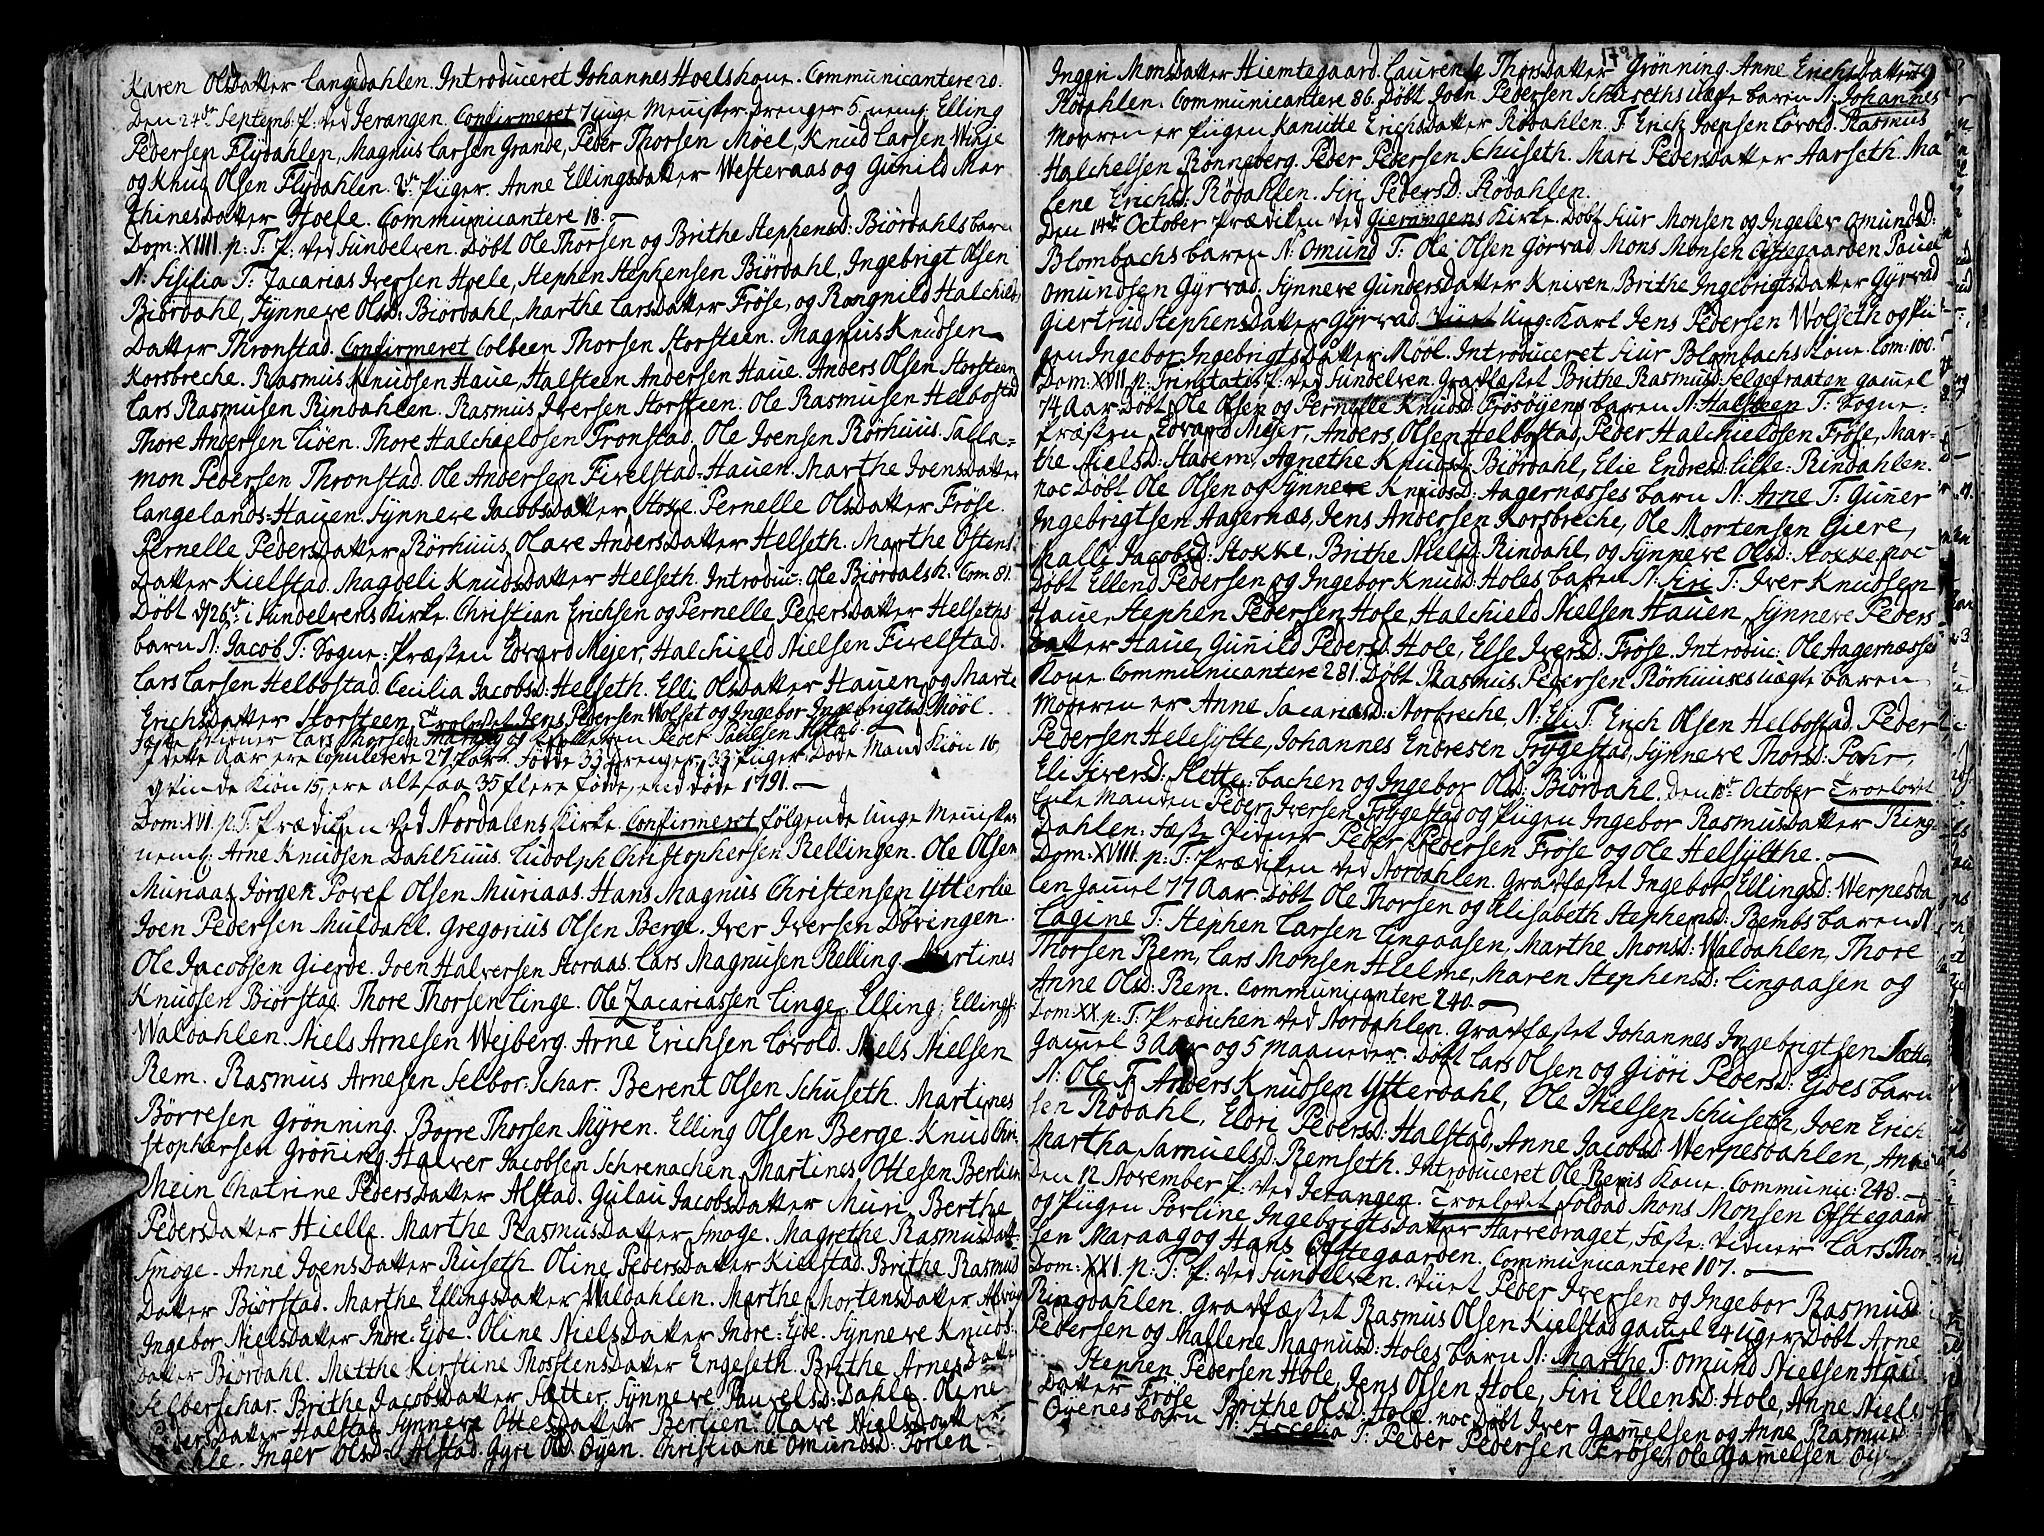 Karen Olsdatter Langdahlen. Introduceret Johannes Hoels kone. Communicantere 20.
Den 24de Septemb: P. ved Ierangen. Confirmeret 7 unge Mennisker. Drenger 5. neml: Elling
Pedersen Flydahlen, Magnus Larsen Grande, Peder Thorsen Möel, Knud Larsen Winje
og Knud Olsen Flydahlen. 2de Piiger. Anne Ellingsdatter Westeraas og Gunild Mar
thinesdatter Hoele. Communicantere 18.
Dom: XIIII p: T. P. ved Sundelven. Döbt Ole Thorsen og Brithe Stephensd: Biördahls barn
N: Sisilia T: Zacarias Iversen Hoele, Stephen Stephensen Biördahl, Ingebrigt Olsen
Biördahl, Synneve Olsd: Biördahl, Marthe Larsdatter Fröse, og Rangnild Halchields
Datter Thronstad. Confirmeret Colbeen Thorsen Storsteen. Magnus Knudsen
Korsbreche. Rasmus Knudsen Haue, Halsteen Andersen Haue. Anders Olsen Storsteen
Lars Rasmusen Rindahlen. Rasmus Iversen Storsteen. Ole Rasmusen Helbostad
Thore Andersen Liöen. Thore Halchieldsen Tronstad. Ole Joensen Rörhuus. Salla=
mon Pedersen Thronstad. Ole Andersen Fivelstad=Hauen. Marthe Joensdatter
Langelands=Hauen. Synneve Jacobsdatter Stoxe. Pernelle Olsdatter Fröse.
Pernelle Pedersdatter Rörhuus. Olave Andersdatter Helseth. Marthe Ostens
datter Kielstad. Magdeli Knudsdatter Helseth. Introduc: Ole Biördals k: Com 81.
Döbt d 26de i Sundelvens Kirke. Christian Erichsen og Pernelle Pedersdatter Helseths
barn N: Jacob T: Sogne: Præsten Edvard Mejer, Halchield Nielsen Fivelstad.
Lars Larsen Helbostad. Cecilia Jacobsd: Helseth. Elli Olsdatter Hauen, og Marte
Erichsdatter Storsteen. Troelovet Jens Pedersen Wolset og Ingebor Ingebrigtsd Möol.
Faste vidner Lars Thorsen Maraag og Peder Paulsen
I dette Aar ere Copulerede 27 Par. Födde 33 Drenger, 33 Piiger. Döde Mand Kiön 16
qvinde Kiön 15, ere alt saa 35 flere födde, end döde 1791.
Dom: XVI. p: T. Prædichen ved Nordalens Kirke. Confirmeret fölgende Unge Mennisker
neml: Arne Knudsen Dahlhuus. Ludolph Christophersen Rellingen. Ole Olsen
Muriaas Jörgen Povel Olsen Muriaas. Hans Magnus Christensen Ytterlie
Joen Pedersen Muldahl. Gregorius Olsen Berge. Iver Iversen Dövingen.
Ole Jacobsen Gierde. Joen Halversen Storaas. Lars Magnusen Relling Martines
Knudsen Biörstad. Thore Thorsen Linge. Ole Zacariassen Linge. Elling Ellings:
Waldahlen. Niels Arnesen Wejberg. Arne Erichsen Lövold. Niels Nielsen
Rem. Rasmus Arnesen Selbor:schar. Berent Olsen Schuseth. Martines
Börresen Grönning. Börre Thorsen Myren. Elling Olsen Berge. Knud Chri
stophersen Grönning Halver Jacobsen Schrenachen. Martines Ottesen Berlien
Mein Chatrine Pedersdatter Alstad. Gulau Jacobsdatter Muri, Berthe
Pedersdatter Hielle. Marthe Rasmusdatter Smoge. Magrethe Rasmusdatt:
Smoge. Anne Joensdatter Ruseth. Oline Pedersdatter Kielstad. Brithe Rasmus
datter Biörstad. Marthe Ellingsdatter Waldahlen. Marthe Mortensdatter
Ingebor Nielsdatter Indre=Ejde. Oline Nielsdatter Indre=Ejde. Synneve Knuds:
datter Biördahl. Metthe Kirstine Thostensdatter Engeseth. Brithe Arnesdatter
Selberschar. Brithe Jacobsdatter Sætter, Synneve Pauvelsd: Dahle. Oline
Pedersdatter Halstad. Synneve Ottesdatter Berlien. Olave Nielsdatter
Inger Olsd: Alstad. Gyre Olsd. Öyen. Christiane Omundsd: Torlen
1791
Ingeri Monsdatter Hiemtegaard. Laurense Thorsdatter Grönning. Anne Erichsdatter
Rödahlen. Communicantere 86. Döbt Joen Pedersen Schuseths uægte barn N: Johannes
Moderen er Piigen Kanutte Erichsdatter Rödahlen. T. Erich Joensen Lövold. Rasmus
Halchelsen Rönneberg. Peder Pedersen Schuseth. Mari Pedersdatter Aarseth. Ma
lene Erichsd: Rödahlen. Siri Pedersd: Rödahlen.
Den 14de October Prædiken ved Gierangens Kirke. Döbt Siur Monsen og Ingelev Omundsd:
Blombachs barn N: Omund T: Ole Olsen Görvad, Mons Monsen Ofstegaarden Pauel
Omundsen Gyrvad. Synneve Gundersdatter Kniven, Brithe Ingebrigtsdatter Gyrvad
Giertrud Stephensdatter Gyrvad. Viiet Ung: Karl Jens Pedersen Wolseth og Pii
gen Ingebor Ingebrigtsdatter Möol. Introduceret Siur Blombachs Kone. Com: 100.
Dom: XVII p: Trinitatis P: ved Sundelven. Gravfæstet Brithe Rasmusd: Felgefraaten gamel
74 Aar Döbt Ole Olsen og Pernille Knudsd: Frösöyens barn N: Halsteen T: Sogne:
Præsten Edvard Mejer, Anders Olsen Helbostad, Peder Halchieldsen Fröse, Mar=
the Nielsd: Stadem, Agnethe Knudsd: Biördahl, Elie Endresd: Lille=Rindahlen.
noc Döbt Ole Olsen og Synneve Knudsd: Aagernæsses barn N: Arne T: Guner
Ingebrigtsen Aagernæs, Jens Andersen Korsbreche, Ole Mortensen Giere,
Malli Jacobsd: Stokke, Brithe Nielsd: Rindahl, og Synneve Olsd: Stokke noc
Döbt Ellend Pedersen og Ingebor Knudsd: Holes barn N: Siri T: Iver Knudsen
Haue, Stephen Pedersen Hole, Halchield Nielsen Hauen, Synneve Peders
datter Haue, Gunild Pedersd: Hole, Else Iversd: Fröse. Introduc: Ole Aagernæsses
Kone. Communicantere 281. Döbt Rasmus Pedersen Rörhuuses uægte barn
Moderen er Anne Sacariasd: Norbreche, N: Eli T. Erich Olsen Helbostad. Peder
Pedersen Helesylte, Johannes Endresen Tryggestad, Synneve Thorsd: Fahr,
Eli Siversd: Slette=bachen og Ingebor Olsd: Biördahl. Den 18de October Troelovet
Enke Manden Peder Iversen Tryggestad og Piigen Ingebor Rasmusdatter Ring
dahlen: Fæste Vidner Peder Pedersen Fröse og Ole Helsylthe.
Dom: XVIII. p: T: Prædiken ved Nordahlen. Gravfæstet Ingebor Ellingsd: Wernesda
len gamel 77 Aar. Döbt Ole Thorsen og Elisabeth Stephensd: Rembs barn N:
Lagine T: Stephen Larsen Lingaasen, Marthe Monsd: Waldahlen, Thore
Thorsen Rem, Lars Monsen Hielme, Maren Stephensd: Lingaasen og
Anne Olsd: Rem. Communicantere 240.
Dom: XX p: T: Prædichen ved Nordahlen. Gravfæstet Johannes Ingebrigtsen Sætter
gamel 3 Aar og 5 Maaneder. Döbt Lars Olsen og Giöri Pedersd: Ejdes barn
N: Ole T: Anders Knudsen Ytterdahl, Ole Nielsen Schuseth, Joen Erich
sen Rödahl, Eldri Pedersd: Halstad, Anne Jacobsd: Wernesdahlen, Anne
Martha Samuelsd: Remseth. Introduceret Ole Rems Kone. Communic: 248.
Den 12 November P: ved Ierangen. Troelovet Soldad Mons Monsen Ofstegaard
og Piigen Porline Ingebrigtsdatter Harvedraget, Fæste: Vidner Lars Thor
sen Maraag og Hans Ofstegaarden. Communicantere 107.
Dom: XXI. p: T: P: ved Sundelven. Viiet Peder Iversen og Ingebor Rasmusd:
Ringdahlen. Gravfæstet Rasmus Olsen Kielstad gamel 24 Uger. Döbt Arne
Pedersen og Mallene Magnusd: Holes barn N: Marthe T: Omund Nielsen Haue
Stephen Pedersen Hole, Jens Olsen Hole, Siri Ellensd: Hole, Anne Niels
datter Fröse Brithe Olsd: Hole. noc Döbt Iver Gammelsen og Anne Rasmusd:
Ovenes barn N: T: Peder Pedersen Fröse, Ole Gammelsen